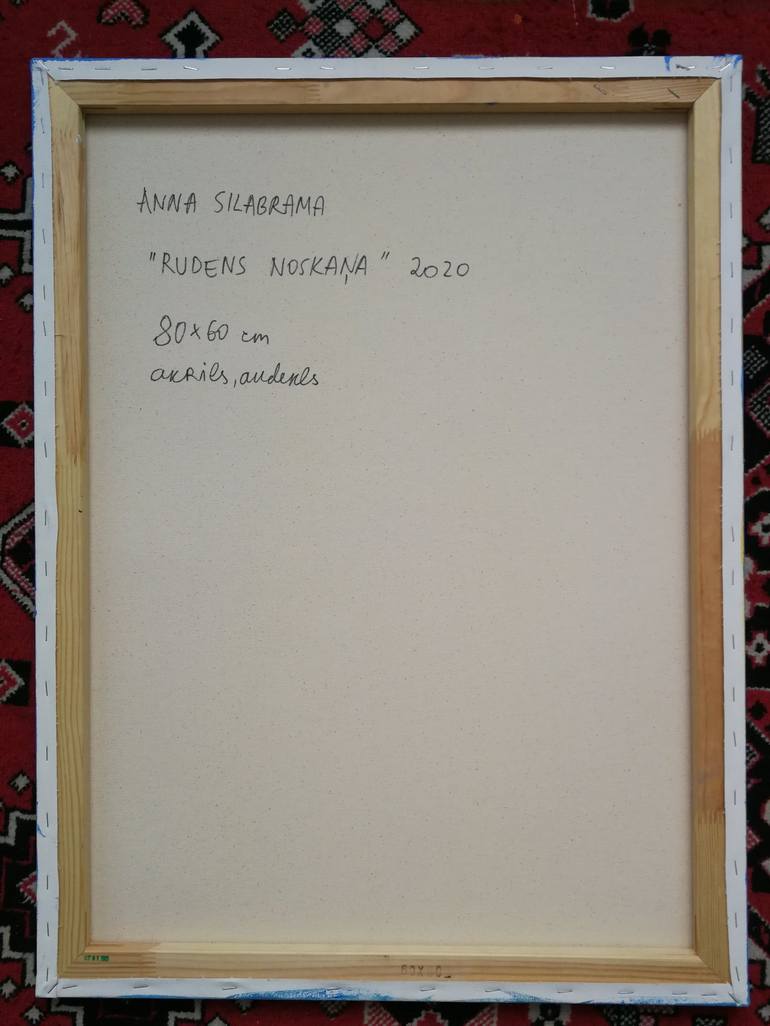 ANNA SILABRAMA
"RUDENS NOSKAŅA" 2020
80x60 cm
akRils, audekls